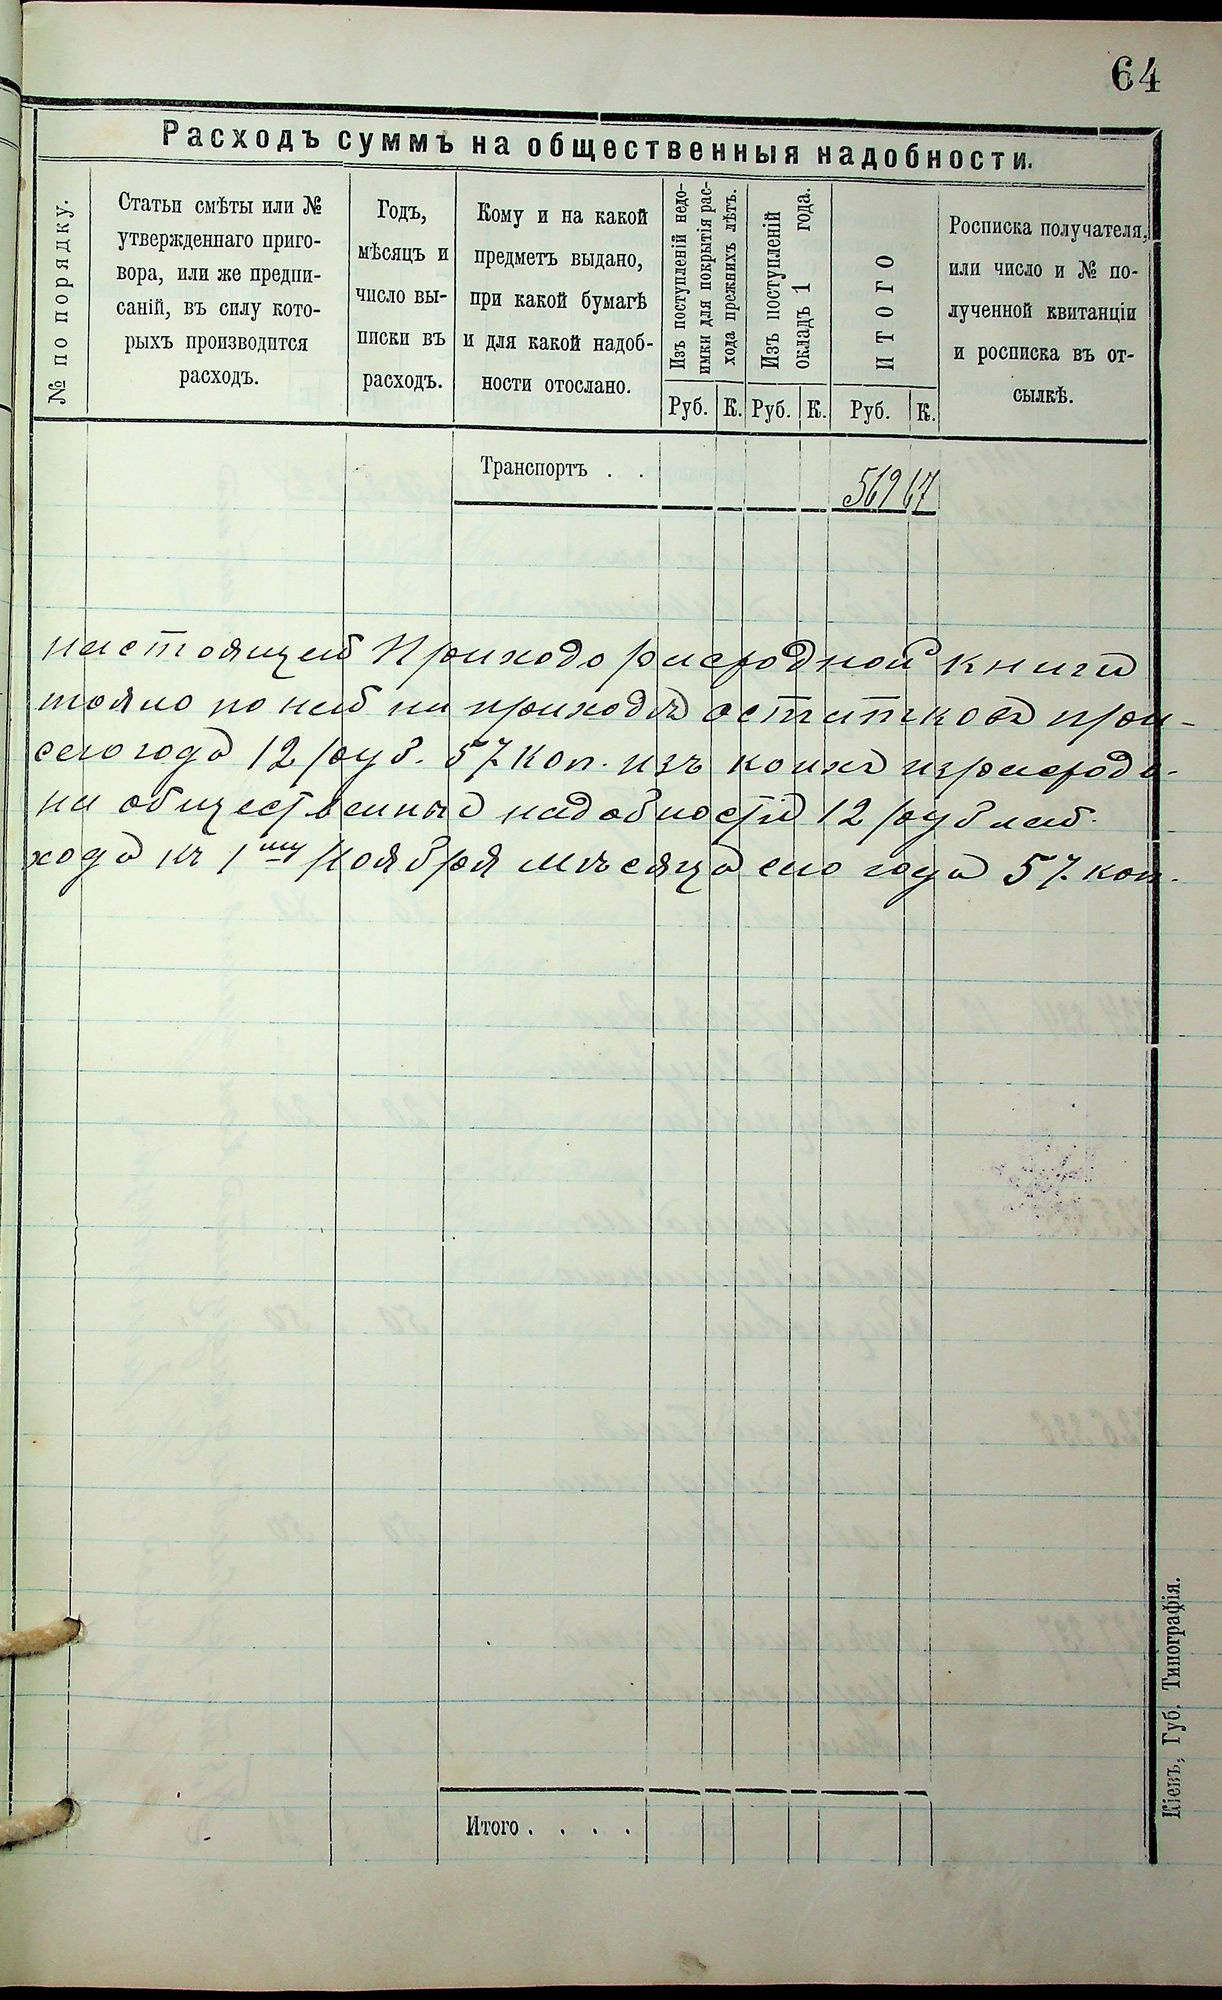 64
Расходъ суммъ на общественныя надобности.
№ по порядку.
Статьи смѣты или №
утвержденнаго приго-
вора, или же предпи-
саній, въ силу кото-
рыхъ производится
расходъ.
Годъ,
мѣсяцъ и
число вы-
писки въ
расходъ.
Кому и на какой
предметъ выдано,
при какой бумагѣ
и для какой надоб-
ности отослано.
Изъ поступленій недо-
имки для покрытія рас-
хода прежнихъ лѣтъ.
Руб. К.
Изъ поступленій
окладъ 1 года.
Руб. К.
ИТОГО
Руб. К.
Росписка получателя,
или число и № по-
лученной квитанціи
и росписка въ от-
сылкѣ.
Транспортъ . . 569 67
настоящей Приходо расходной книги
тояло по ней на приходѣ остатковъ при-
сего года 12 руб. 57 коп. изъ коихъ израсходо-
на общественныя надобности 12 рублей.
хода къ 1му Ноября мѣсяца сего года 57 коп.
Итого . . . .
Кіевъ, Губ. Типографія.